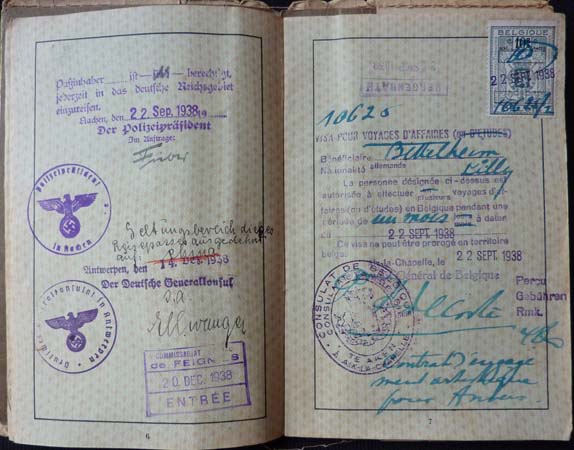 Paßinhaber ist — berechtigt,
jederzeit in das deutsche Reichsgebiet
einzureisen.
Aachen, den 22. Sep. 1938 19
Der Polizeipräsident
Im Auftrage:
Polizeipräsident
in Aachen
Geltungsbereich dieses
Reisepasses ausgedehnt
auf: China
Antwerpen, den 14. Dez. 1938
Der Deutsche Generalkonsul
Ellwanger
Deutsches Generalkonsulat in Antwerpen
COMMISSARIAT
de FEIGNIES
20 DEC. 1938
ENTRÉE
6
BELGIQUE
22 SEPT. 1938
10625/2
10625
VISA POUR VOYAGES D'AFFAIRES (ou D'ETUDES)
Bénéficiaire Bettelheim
Lilly
Nationalité allemande
La personne désignée ci-dessus est
autorisée à effectuer plusieurs voyages d'af-
faires (ou d'études) en Belgique pendant une
période de un mois à dater
du 22 SEPT. 1938
Ce visa ne peut être prorogé en territoire
belge.
Aix-la-Chapelle, le 22 SEPT. 1938
Général de Belgique
CONSULAT DE BELGIQUE
AIX-LA-CHAPELLE
Perçu
Gebühren
Rmk.
Contrat d'engage
ment artistique
pour Anvers.
7